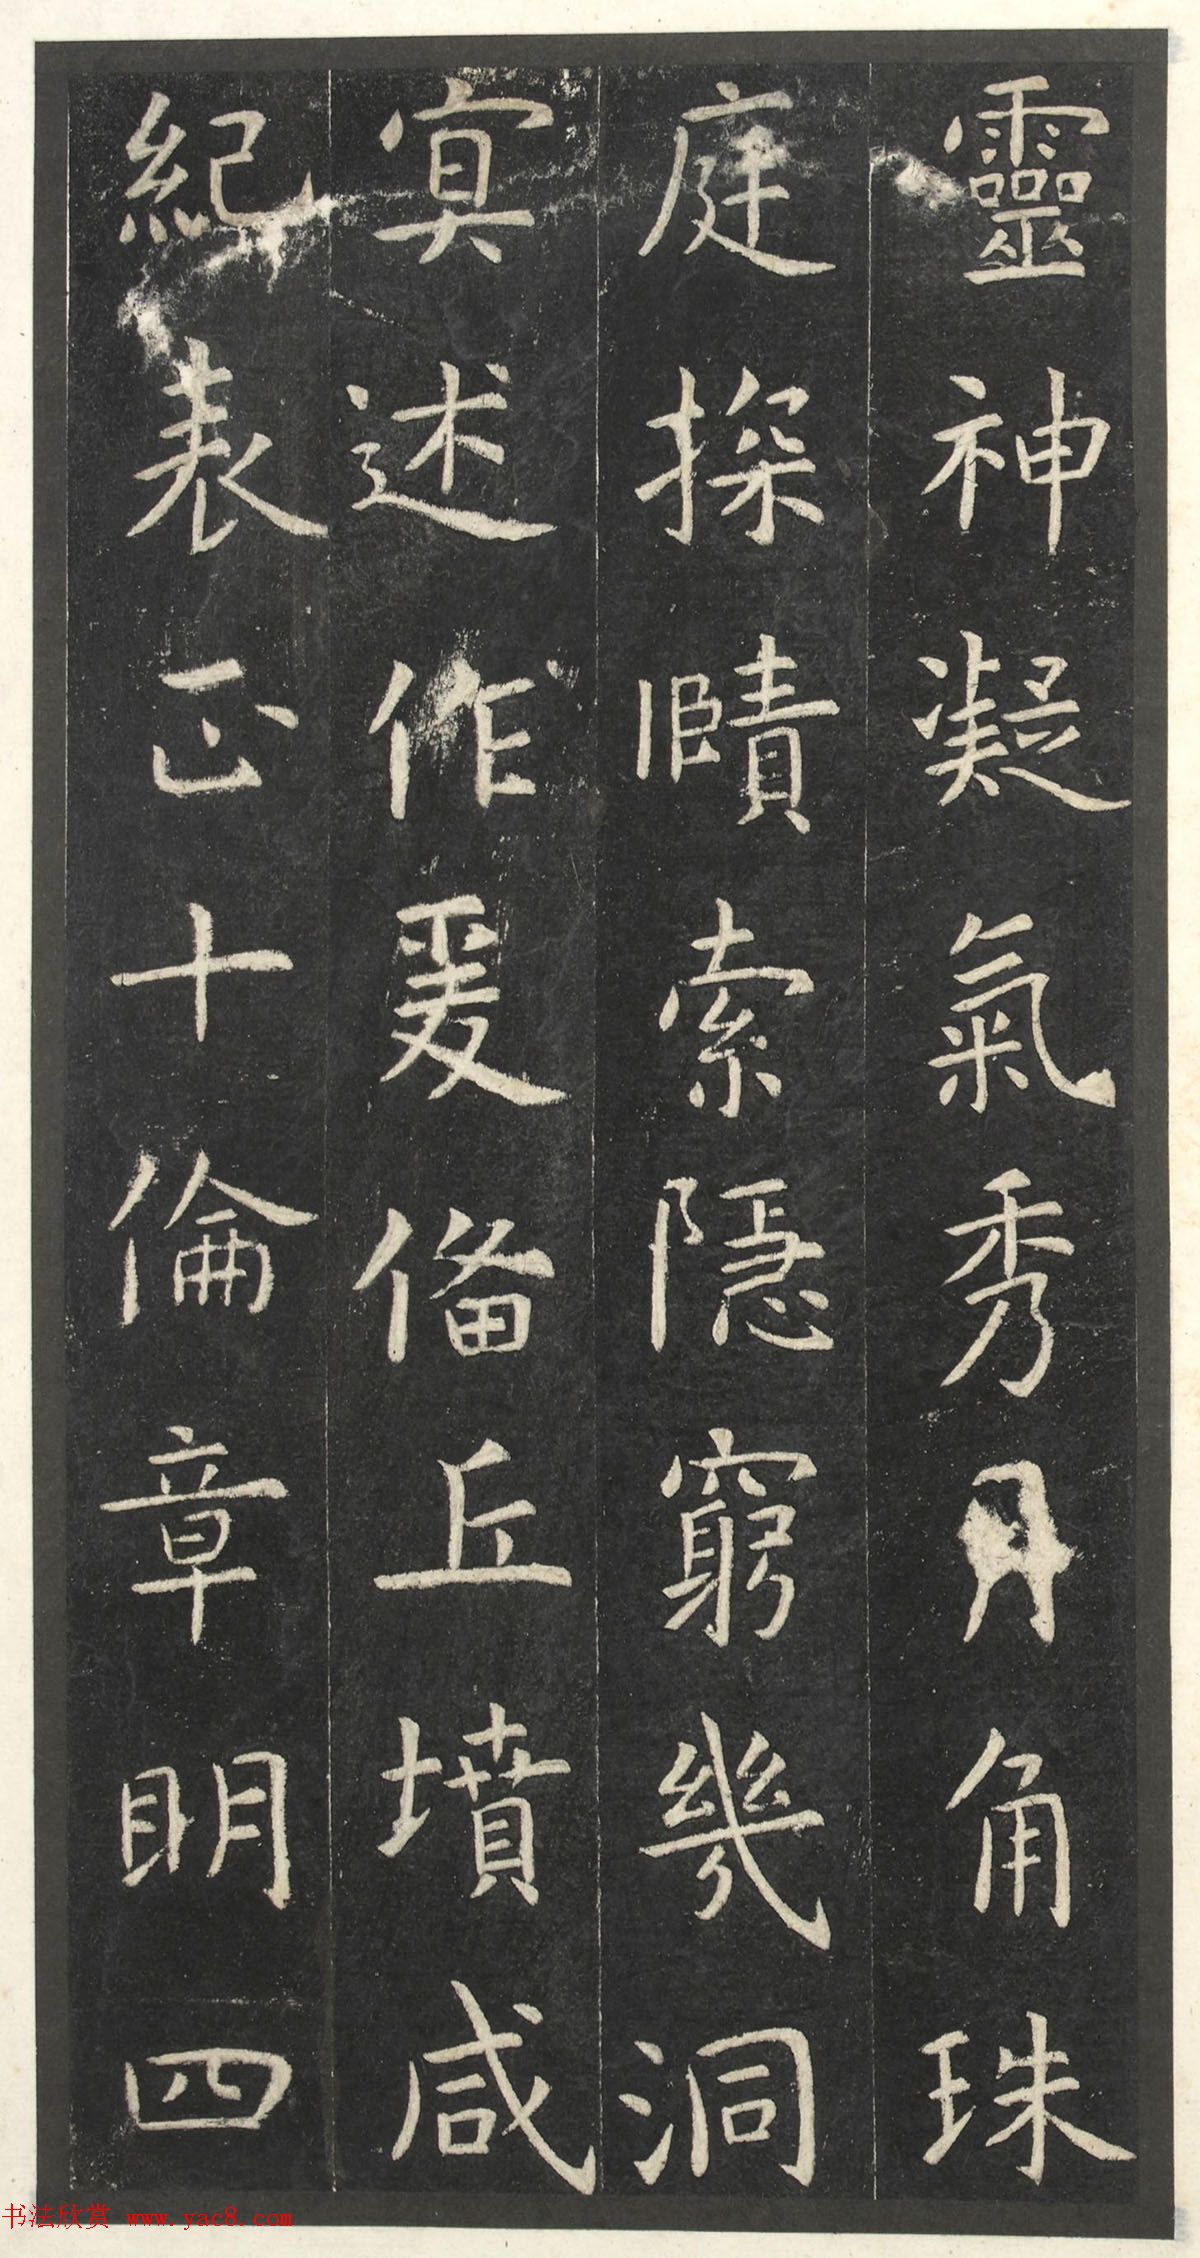 靈神凝氣秀月角珠
庭探賾索隱窮幾洞
冥述作爰俻丘墳咸
紀表正十倫章明四
书法欣赏 www.yac8.com